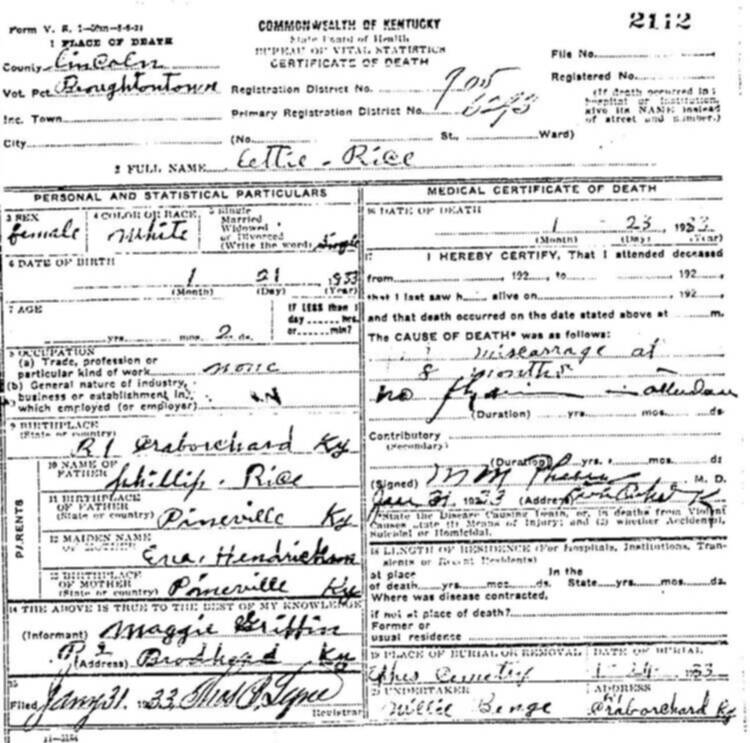 Form V. S. 1
COMMONWEALTH OF KENTUCKY
2112
1 PLACE OF DEATH
State Board of Health
BUREAU OF VITAL STATISTICS
CERTIFICATE OF DEATH
County Lincoln
File No.
Vot. Pct. Broughtontown
Registration District No. 705
Registered No.
Inc. Town
Primary Registration District No.
(If death occurred in a hospital or institution, give its NAME instead of street and number.)
City
(No. St., Ward)
2 FULL NAME Lettie - Rice
PERSONAL AND STATISTICAL PARTICULARS
3 SEX
female
4 COLOR OR RACE
White
5 Single
Married
Widowed
or Divorced
(Write the word) Single
6 DATE OF BIRTH
1 21 1933
(Month) (Day) (Year)
7 AGE
yrs. mos. 2 ds.
IF LESS than 1
day hrs.
or min?
8 OCCUPATION
(a) Trade, profession or
particular kind of work none
(b) General nature of industry,
business or establishment in
which employed (or employer)
9 BIRTHPLACE
(State or country)
R 1 Craborchard Ky
PARENTS
10 NAME OF
FATHER
Phillip - Rice
11 BIRTHPLACE
OF FATHER
(State or country) Pineville Ky
12 MAIDEN NAME
OF MOTHER
Eva. Hendrickson
13 BIRTHPLACE
OF MOTHER
(State or country) Pineville Ky
14 THE ABOVE IS TRUE TO THE BEST OF MY KNOWLEDGE
(Informant) Maggie Griffin
(Address) Brodhead Ky
15
Filed Jany 31 1933
Registrar
11-3184
MEDICAL CERTIFICATE OF DEATH
16 DATE OF DEATH
1 23 1933
(Month) (Day) (Year)
17 I HEREBY CERTIFY, That I attended deceased
from 192 , to 192
that I last saw h alive on 192
and that death occurred on the date stated above at m.
The CAUSE OF DEATH* was as follows:
miscarrage at
8 months
no in attendance
(Duration) yrs. mos. ds.
Contributory
(Secondary)
(Duration) yrs. mos. ds.
(Signed) M. D.
Jan 31 1933 (Address) Ky
*State the Disease Causing Death, or, in deaths from Violent
Causes state (1) Means of Injury; and (2) whether Accidental,
Suicidal or Homicidal.
18 LENGTH OF RESIDENCE (For hospitals, Institutions, Transients or Recent Residents)
at place In the
of death yrs. mos. ds. State yrs. mos. ds.
Where was disease contracted,
if not at place of death?
Former or
usual residence
19 PLACE OF BURIAL OR REMOVAL
DATE OF BURIAL
Cemetry 1-24-1933
20 UNDERTAKER
ADDRESS
Willie Benge
Craborchard Ky